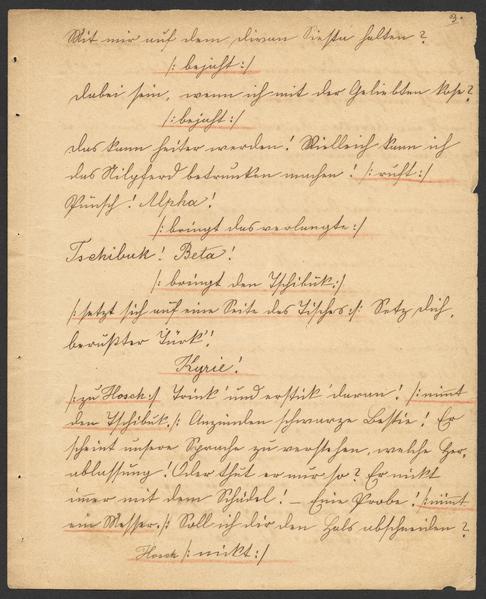 9.
Mit mir auf dem divan Siesta halten?
/: bejaht :/
dabei sein, wenn ich mit der Geliebten kose?
/: bejaht :/
das kann heiter werden! Vielleich kann ich
das Nilpferd betrunken machen! /: ruft :/
Pünsch! Alpha!
/: bringt das verlangte :/
Tschibuk! Beta!
/: bringt den Tschibuk :/
/: setzt sich auf eine Seite des Tisches :/: Setz dich,
berußter Türk'!
Kyrie!
/: zu Hosch :/ Trink' und erstick' daran! /: nimt
den Tschibuk, /: Anzünden schwarze Bestie! Er
scheint unsere Sprache zu verstehen, welche Her,
ablassung! Oder thut er nur so? Er nickt
imer mit dem Schädel! – Eine Probe! /: nimt
ein Messer, :/: Soll ich dir den Hals abschneiden?
Hosch /: nickt :/